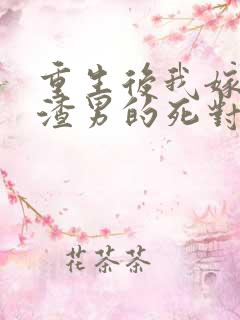 重生後我嫁
渣男的死對
花茶茶